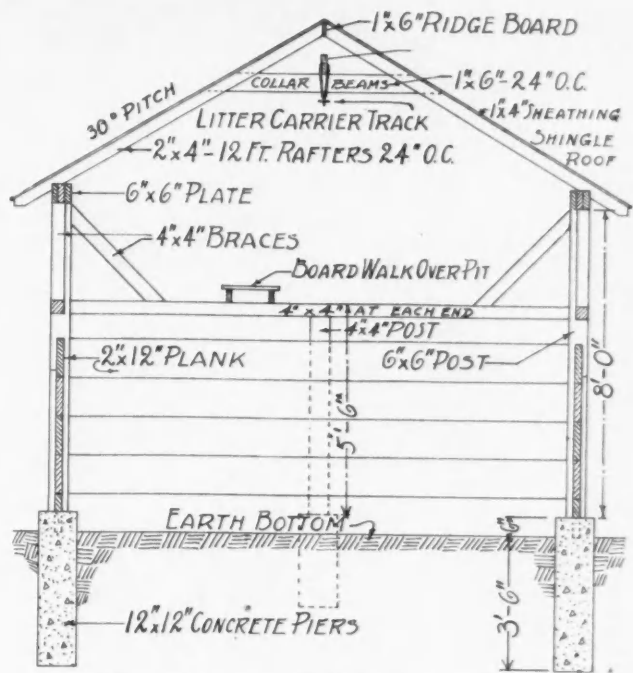 1"x6" RIDGE BOARD
COLLAR BEAMS
1"x6"-24" O.C.
30° PITCH
1"x4" SHEATHING
SHINGLE
ROOF
LITTER CARRIER TRACK
2"x4"-12 FT. RAFTERS 24" O.C.
6"x6" PLATE
4"x4" BRACES
BOARD WALK OVER PIT
4" x 4" AT EACH END
4"x4" POST
2"x12" PLANK
6"x6" POST
8'-0"
5'-6"
EARTH BOTTOM
6"
3'-6"
12"x12" CONCRETE PIERS